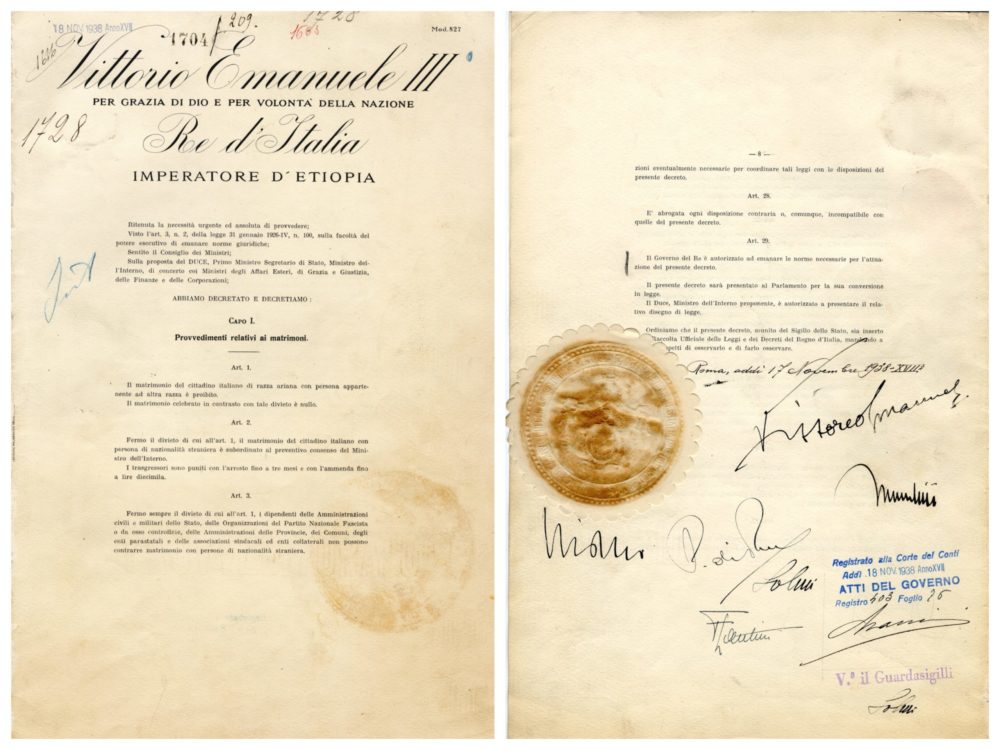 18 NOV 1938 Anno XVII
1704
209.
1728
Mod. 827
Vittorio Emanuele III
PER GRAZIA DI DIO E PER VOLONTA' DELLA NAZIONE
1728
Re d'Italia
IMPERATORE D'ETIOPIA
Ritenuta la necessità urgente ed assoluta di provvedere;
Visto l'art. 3, n. 2, della legge 31 gennaio 1926-IV, n. 100, sulla facoltà del
potere esecutivo di emanare norme giuridiche;
Sentito il Consiglio dei Ministri;
Sulla proposta del DUCE, Primo Ministro Segretario di Stato, Ministro del-
l'Interno, di concerto coi Ministri degli Affari Esteri, di Grazia e Giustizia,
delle Finanze e delle Corporazioni;
ABBIAMO DECRETATO E DECRETIAMO:
CAPO I.
Provvedimenti relativi ai matrimoni.
Art. 1.
Il matrimonio del cittadino italiano di razza ariana con persona apparte-
nente ad altra razza è proibito.
Il matrimonio celebrato in contrasto con tale divieto è nullo.
Art. 2.
Fermo il divieto di cui all'art. 1, il matrimonio del cittadino italiano con
persona di nazionalità straniera è subordinato al preventivo consenso del Mini-
stro dell'Interno.
I trasgressori sono puniti con l'arresto fino a tre mesi e con l'ammenda fino
a lire diecimila.
Art. 3.
Fermo sempre il divieto di cui all'art. 1, i dipendenti delle Amministrazioni
civili e militari dello Stato, delle Organizzazioni del Partito Nazionale Fascista
o da esso controllate, delle Amministrazioni delle Provincie, dei Comuni, degli
enti parastatali e delle associazioni sindacali ed enti collaterali non possono
contrarre matrimonio con persone di nazionalità straniera.
— 8 —
zioni eventualmente necessarie per coordinare tali leggi con le disposizioni del
presente decreto.
Art. 28.
E' abrogata ogni disposizione contraria o, comunque, incompatibile con
quelle del presente decreto.
Art. 29.
Il Governo del Re è autorizzato ad emanare le norme necessarie per l'attua-
zione del presente decreto.
Il presente decreto sarà presentato al Parlamento per la sua conversione
in legge.
Il Duce, Ministro dell'Interno proponente, è autorizzato a presentare il rela-
tivo disegno di legge.
Ordiniamo che il presente decreto, munito del Sigillo dello Stato, sia inserto
Raccolta Ufficiale delle Leggi e dei Decreti del Regno d'Italia, mandando a
spetti di osservarlo e di farlo osservare.
Roma, addì 17 Novembre 1938-XVII
Vittorio Emanuele
Mussolini
Ciano
Solmi
Registrato alla Corte dei Conti
Addì 18 NOV. 1938 Anno XVII
ATTI DEL GOVERNO
Registro 403 Foglio 76
V.° il Guardasigilli
Solmi